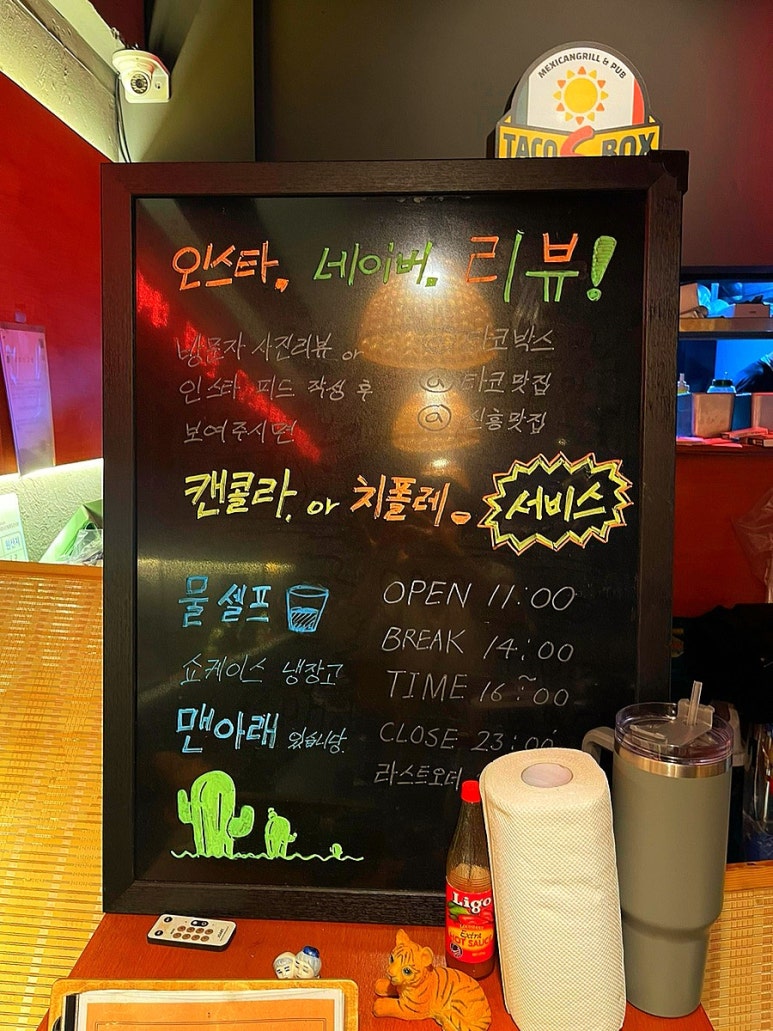 MEXICANGRILL & PUB
TACO BOX
인스타, 네이버, 리뷰!
방문자 사진리뷰 or
인스타 피드 작성 후
보여주시면
@ 타코박스
@ 타코맛집
@ 신흥맛집
캔콜라, or 치폴레 서비스
물 셀프
쇼케이스 냉장고
맨아래 있습니당
OPEN 11:00
BREAK 14:00
TIME 16~:00
CLOSE 23:00
라스트오더
Ligo
Extra
HOT SAUCE